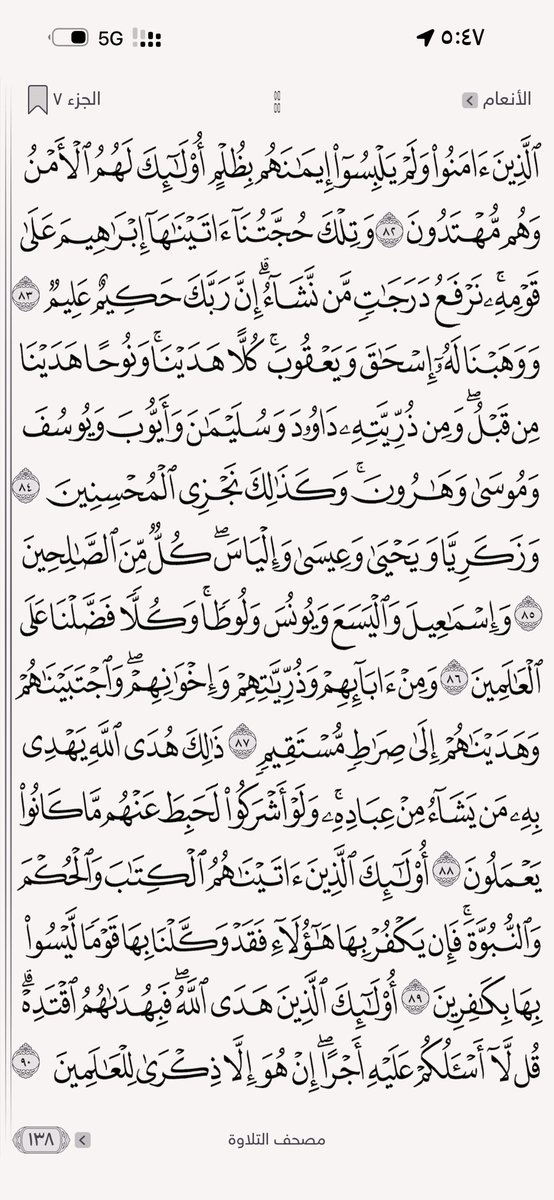 ٥:٤٧ 5G
الأنعام الجزء ٧
ٱلَّذِينَ ءَامَنُوا۟ وَلَمْ يَلْبِسُوٓا۟ إِيمَـٰنَهُم بِظُلْمٍ أُو۟لَـٰٓئِكَ لَهُمُ ٱلْأَمْنُ
وَهُم مُّهْتَدُونَ ٨٢ وَتِلْكَ حُجَّتُنَآ ءَاتَيْنَـٰهَآ إِبْرَٰهِيمَ عَلَىٰ
قَوْمِهِۦ ۚ نَرْفَعُ دَرَجَـٰتٍ مَّن نَّشَآءُ ۗ إِنَّ رَبَّكَ حَكِيمٌ عَلِيمٌ ٨٣
وَوَهَبْنَا لَهُۥٓ إِسْحَـٰقَ وَيَعْقُوبَ ۚ كُلًّا هَدَيْنَا ۚ وَنُوحًا هَدَيْنَا
مِن قَبْلُ ۖ وَمِن ذُرِّيَّتِهِۦ دَاوُۥدَ وَسُلَيْمَـٰنَ وَأَيُّوبَ وَيُوسُفَ
وَمُوسَىٰ وَهَـٰرُونَ ۚ وَكَذَٰلِكَ نَجْزِى ٱلْمُحْسِنِينَ ٨٤
وَزَكَرِيَّا وَيَحْيَىٰ وَعِيسَىٰ وَإِلْيَاسَ ۖ كُلٌّ مِّنَ ٱلصَّـٰلِحِينَ
٨٥ وَإِسْمَـٰعِيلَ وَٱلْيَسَعَ وَيُونُسَ وَلُوطًا ۚ وَكُلًّا فَضَّلْنَا عَلَى
ٱلْعَـٰلَمِينَ ٨٦ وَمِنْ ءَابَآئِهِمْ وَذُرِّيَّـٰتِهِمْ وَإِخْوَٰنِهِمْ ۖ وَٱجْتَبَيْنَـٰهُمْ
وَهَدَيْنَـٰهُمْ إِلَىٰ صِرَٰطٍ مُّسْتَقِيمٍ ٨٧ ذَٰلِكَ هُدَى ٱللَّهِ يَهْدِى
بِهِۦ مَن يَشَآءُ مِنْ عِبَادِهِۦ ۚ وَلَوْ أَشْرَكُوا۟ لَحَبِطَ عَنْهُم مَّا كَانُوا۟
يَعْمَلُونَ ٨٨ أُو۟لَـٰٓئِكَ ٱلَّذِينَ ءَاتَيْنَـٰهُمُ ٱلْكِتَـٰبَ وَٱلْحُكْمَ
وَٱلنُّبُوَّةَ ۚ فَإِن يَكْفُرْ بِهَا هَـٰٓؤُلَآءِ فَقَدْ وَكَّلْنَا بِهَا قَوْمًا لَّيْسُوا۟
بِهَا بِكَـٰفِرِينَ ٨٩ أُو۟لَـٰٓئِكَ ٱلَّذِينَ هَدَى ٱللَّهُ ۖ فَبِهُدَىٰهُمُ ٱقْتَدِهْ ۗ
قُل لَّآ أَسْـَٔلُكُمْ عَلَيْهِ أَجْرًا ۖ إِنْ هُوَ إِلَّا ذِكْرَىٰ لِلْعَـٰلَمِينَ ٩٠
مصحف التلاوة ١٣٨